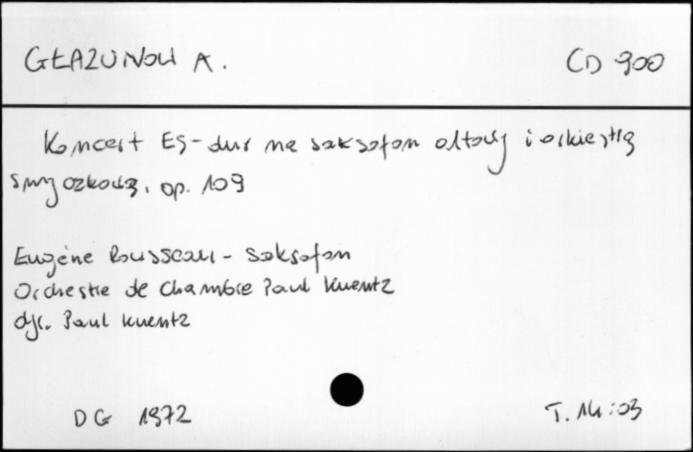 GŁAZUNOW A. CD 900
Koncert Es-dur na saksofon altowy i orkiestrę
smyczkową, op. 109
Eugène Rousseau - saksofon
Orchestre de Chambre Paul Kuentz
dyr. Paul Kuentz
DG 1972 T. 14:03